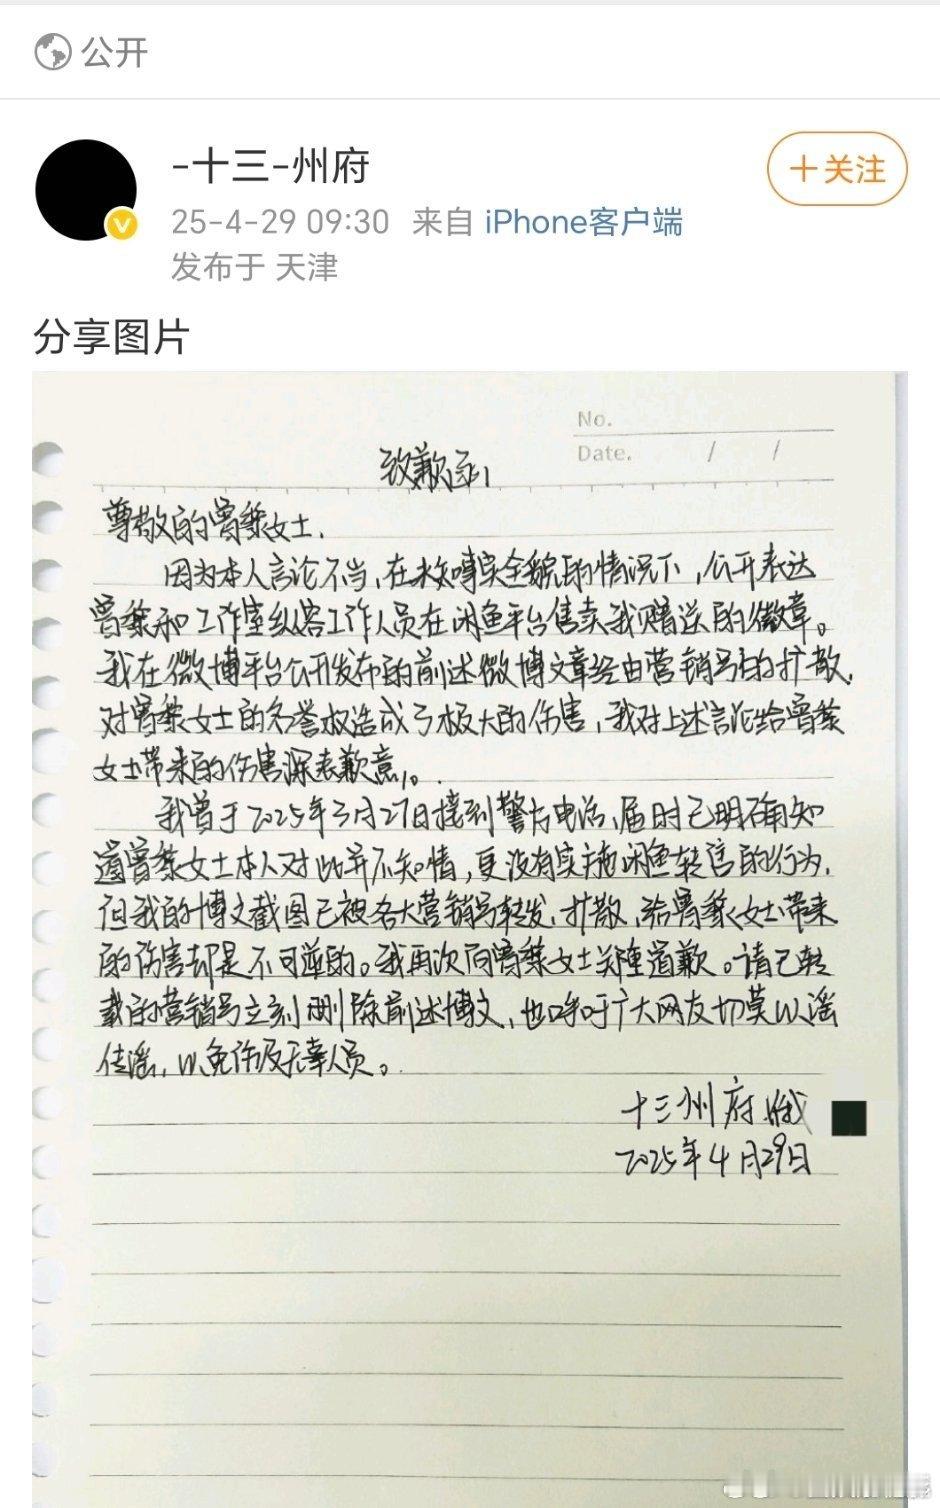 公开
-十三-州府
+关注
25-4-29 09:30 来自 iPhone客户端
发布于 天津
分享图片
No.
Date. / /
致歉函
尊敬的曾黎女士.
因为本人言论不当,在未知事实全貌的情况下,公开表达
曾黎和工作室纵容工作人员在闲鱼平台售卖我赠送的徽章。
我在微博平台公开发布的前述微博文章经由营销号的扩散,
对曾黎女士的名誉权造成了极大的伤害,我对上述言论给曾黎
女士带来的伤害深表歉意。
我曾于2025年3月27日接到警方电话,届时已明确知
道曾黎女士本人对此并不知情,更没有实施闲鱼转售的行为,
但我的博文截图已被各大营销号转发,扩散,给曾黎女士带来
的伤害却是不可逆的。我再次向曾黎女士郑重道歉。请已转
载的营销号立刻删除前述博文,也呼吁广大网友切莫以谣
传谣,以免伤及无辜人员。
十三州府
2025年4月29日